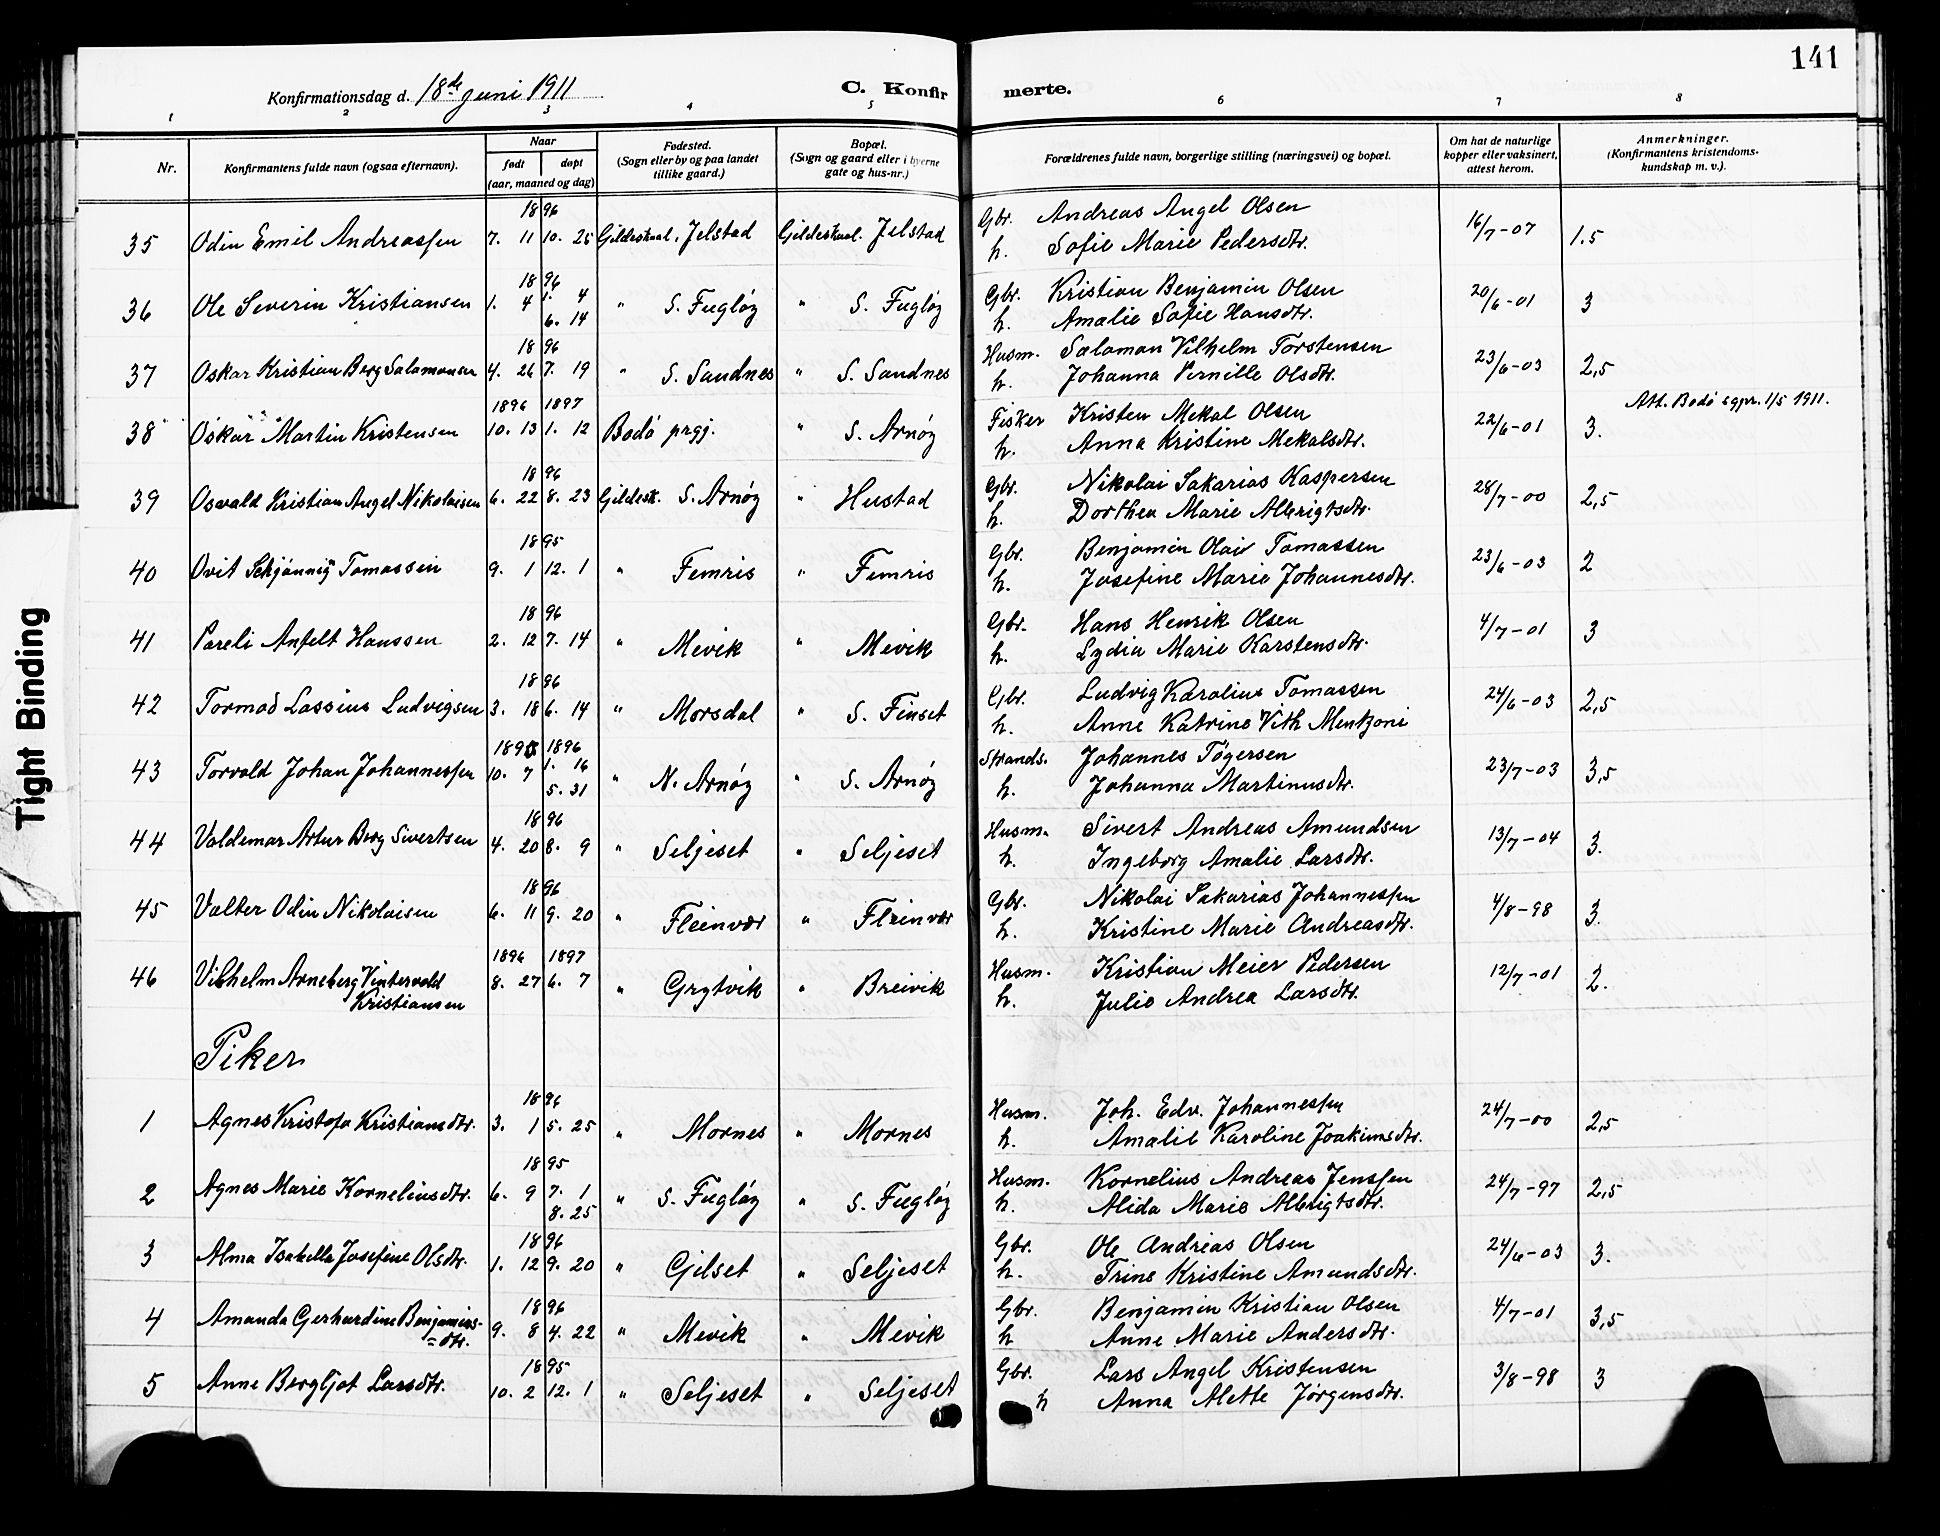 141
Konfirmationsdag d. 18de juni 1911
C. Konfirmerte.
1 2 3 4 5 6 7 8
Nr. Konfirmantens fulde navn (ogsaa efternavn). Naar født døpt (aar, maaned og dag) Fødested. (Sogn eller by og paa landet tillike gaard.) Bopæl. (Sogn og gaard eller i byerne gate og hus-nr.) Forældrenes fulde navn, borgerlige stilling (næringsvei) og bopæl. Om hat de naturlige kopper eller vaksinert, attest herom. Anmerkninger. (Konfirmantens kristendoms-kundskap m. v.).
1896 Gbr. Andreas Angel Olsen
35 Odin Emil Andreassen 7. 11 10. 25 Gildeskaal, Jelstad Gildeskaal. Jelstad h. Sofie Marie Pedersdtr. 16/7-07 1.5
1896 Gbr. Kristian Benjamin Olsen
36 Ole Severin Kristiansen 1. 4 1. 4 " S. Fugløy " S. Fugløy 20/6-01 3
6. 14 h. Amalie Sofie Hansdtr.
1896 Husm. Salamon Vilhelm Torstensen
37 Oskar Kristian Berg Salamonsen 4. 26 7. 19 " S. Sandnes " S. Sandnes h. Johanna Pernille Olsdtr. 23/6-03 2,5
1896 1897 Fisker Kristen Mekal Olsen Att. Bodø sgpr. 1/5 1911.
38 Oskar Martin Kristensen 10. 13 1. 12 Bodø prgj. " S. Arnøy h. Anna Kristine Mekalsdtr. 22/6-01 3.
1896 Gbr. Nikolai Sakarias Kaspersen
39 Osvald Kristian Angel Nikolaisen 6. 22 8. 23 Gildesk. S. Arnøy " Hustad h. Dorthea Marie Albrigtsdtr. 28/7-00 2,5
1895 Gbr. Benjamin Olai Tomassen
40 Ovit Schjønnig Tomassen 9. 1 12. 1 " Femris " Femris h. Josefine Marie Johannesdtr. 23/6-03 2
1896 Gbr. Hans Henrik Olsen
41 Pareli Anfelt Hanssen 2. 12 7. 14 " Mevik " Mevik h. Lydia Marie Karstensdtr. 4/7-01 3
1896 Gbr. Ludvig Karolius Tomassen
42 Tormod Lassius Ludvigsen 3. 18 6. 14 " Morsdal " S. Finset h. Anne Katrine Vith Mentzoni 24/6-03 2,5
1895 1896 Strands. Johannes Tøgersen
43 Torvald Johan Johannessen 10. 7 1. 16 " N. Arnøy " S. Arnøy 23/7-03 3,5
5. 31 h. Johanna Martinusdtr.
1896 Husm. Sivert Andreas Amundsen
44 Valdemar Artur Berg Sivertsen 4. 20 8. 9 " Seljeset " Seljeset h. Ingeborg Amalie Larsdtr. 13/7-04 3.
1896 Gbr. Nikolai Sakarias Johannessen
45 Valter Odin Nikolaisen 6. 11 9. 20 " Fleinvær " Fleinvær h. Kristine Marie Andreasdtr. 4/8-98 3.
1896 1897 Husm. Kristian Meier Pedersen
46 Vilhelm Arneberg Vintervold 8. 27 6. 7 " Grytvik " Breivik 12/7-01 2.
Kristiansen h. Julie Andrea Larsdtr.
Piker
1896 Husm. Joh. Edv. Johannessen
1 Agnes Kristofa Kristiansdtr. 3. 1 5. 25 " Mornes " Mornes h. Amalie Karoline Joakimsdtr. 24/7-00 2,5
1895 Husm. Kornelius Andreas Jenssen
2 Agnes Marie Korneliusdtr. 6. 9 7. 1 " S. Fugløy " S. Fugløy 24/7-97 2,5
8. 25 h. Alida Marie Albrigtsdtr.
1896 Gbr. Ole Andreas Olsen
3 Alma Isabella Josefine Olsdtr. 1. 12 9. 20 " Gjelset " Seljeset h. Trine Kristine Amundsdtr. 24/6-03 3.
1896 Gbr. Benjamin Kristian Olsen
4 Amanda Gerhardine Benjamins- 9. 8 4. 22 " Mevik " Mevik 4/7-01 3,5
=dtr. h Anne Marie Andersdtr.
1895 Gbr. Lars Angel Kristensen
5 Anne Bergljot Larsdtr. 10. 2 12. 1 " Seljeset " Seljeset h Anna Alette Jørgensdtr. 3/8-98 3
Tight Binding